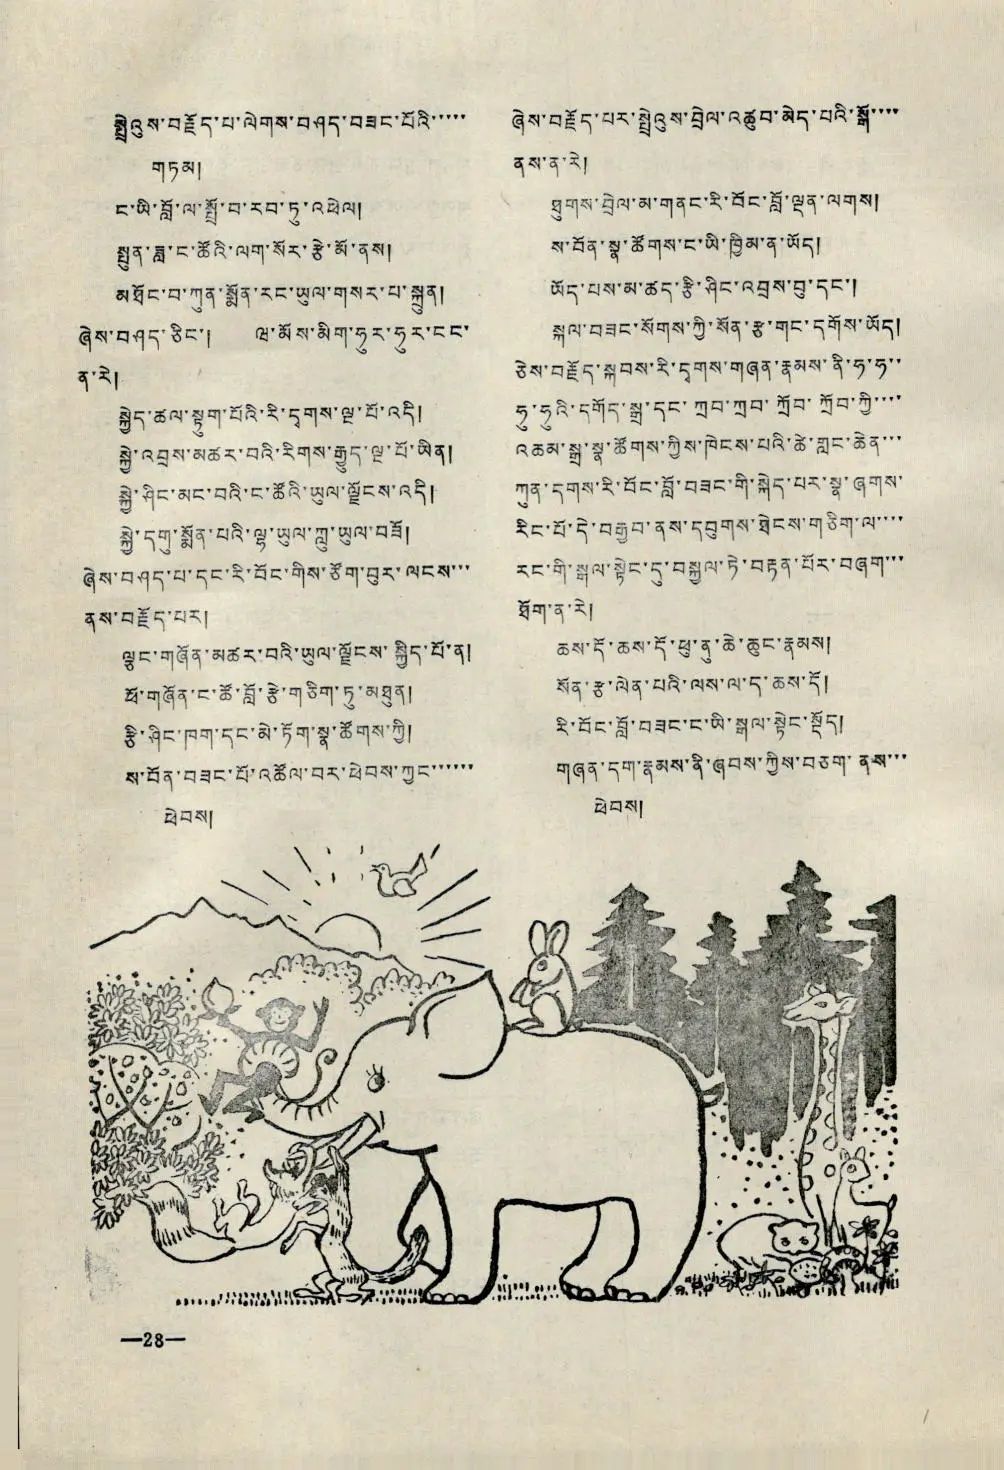 སྤྲེའུས་བརྗོད་པ་ལེགས་བཤད་བཟང་པོའི་་་་་
གཏམ།
ང་ཡི་བློ་ལ་སྤྲོ་བ་རབ་ཏུ་འཕེལ།
སྤུན་ཟླ་ང་ཚོའི་ལག་སོར་རྩེ་མོ་ནས།
མཐོང་བ་ཀུན་སྨོན་རང་ཡུལ་གསར་པ་སྐྲུན།
ཞེས་བཤད་ཅིང་། ཝ་མོས་མིག་ཧུར་ཧུར་ངང་
ན་རེ།
སྐྱེད་ཚལ་སྟུག་པོའི་རི་དྭགས་ལྔ་པོ་འདི།
སྐྱེ་འབྲས་མཚར་བའི་རིགས་རྒྱུད་ལྔ་པོ་ཡིན།
སྐྱེ་ཤིང་མང་བའི་ང་ཚོའི་ཡུལ་ལྗོངས་འདི།
སྐྱེ་དགུ་སྨོན་པའི་ལྷ་ཡུལ་ཀླུ་ཡུལ་བཟོ།
ཞེས་བཤད་པ་དང་རི་བོང་གིས་ཙོག་བུར་ལངས་་་
ནས་བརྗོད་པར།
ལྕང་གཞོན་མཚར་བའི་ཡུལ་ལྗོངས་སྐྱིད་པོ་ན།
ཕོ་གཞོན་ང་ཚོ་བློ་རྩེ་གཅིག་ཏུ་མཐུན།
རྩི་ཤིང་ཁག་དང་མེ་ཏོག་སྣ་ཚོགས་ཀྱི།
ས་བོན་བཟང་པོ་འཚོལ་བར་ཕེབས་ཀྱང་་་་་་་
ཕེབས།
ཞེས་བརྗོད་པར་སྤྲེའུས་བྲེལ་འཚུབ་མེད་པའི་སྒོ་་་་
ནས་ན་རེ།
ཐུགས་བྲེལ་མ་གནང་རི་བོང་བློ་ལྡན་ལགས།
ས་བོན་སྣ་ཚོགས་ང་ཡི་ཁྱིམ་ན་ཡོད།
ཡོད་པས་མ་ཚད་རྩི་ཤིང་འབྲས་བུ་དང་།
སྐལ་བཟང་སོགས་ཀྱི་སོན་རྩ་གང་དགོས་ཡོད།
ཅེས་བརྗོད་སྐབས་རི་དྭགས་གཞན་རྣམས་ནི་ཧ་ཧ་་
ཧུ་ཧུའི་དགོད་སྒྲ་དང་ཀྲབ་ཀྲབ་ཀྲོབ་ཀྲོབ་ཀྱི་་་་
འཆམ་སྒྲ་སྣ་ཚོགས་ཀྱིས་ཁེངས་པའི་ཚེ་གླང་ཆེན་་་
ཀུན་དགས་རི་བོང་བློ་བཟང་གི་སྐེད་པར་སྣ་ཞགས་
རིང་པོ་དེ་བརྒྱབ་ནས་དབུགས་ཐེངས་གཅིག་ལ་་་་
རང་གི་སྒལ་སྟེང་དུ་བསྐྱལ་ཏེ་བརྟན་པོར་བཞག་་་
ཐོག་ན་རེ།
ཆས་དོ་ཆས་དོ་ཕུ་ནུ་ཆེ་ཆུང་རྣམས།
སོན་རྩ་ལེན་པའི་ལས་ལ་ད་ཆས་དོ།
རི་བོང་བློ་བཟང་ང་ཡི་སྒལ་སྟེང་སྡོད།
གཞན་དག་རྣམས་ནི་ཞབས་ཀྱིས་བཅག་ནས་་་
ཕེབས།
—28—